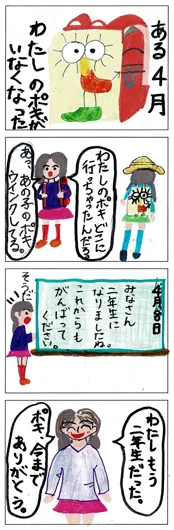 ある4月
わたしのポキが
いなくなった
わたしのポキどこに
行っちゃったんだろ
あっ、あの子のポキ、
ウインクしてる。
4月8日
みなさん
二年生に
なりましたね。
これからも
がんばって
ください。
そうだ
わたしもう
二年生だった。
ポキ、今まで
ありがとう。